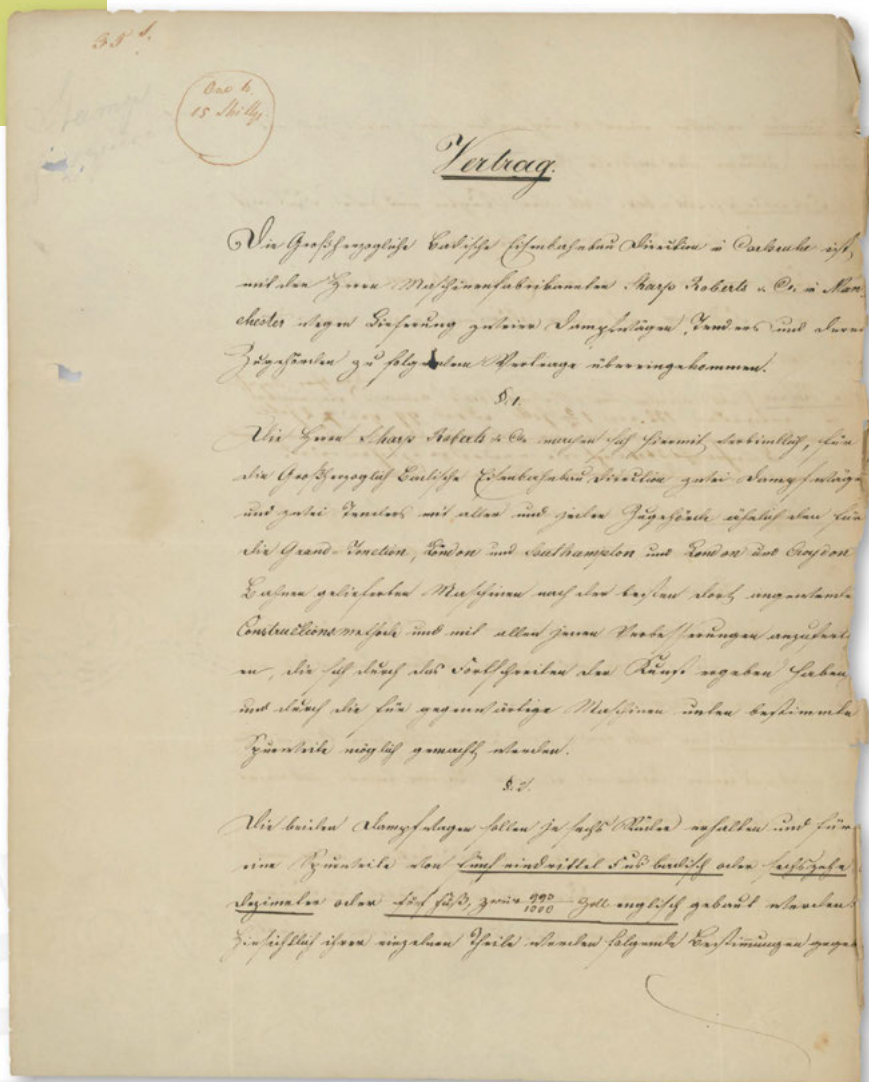 35 s.
One £.
15 Shillgs
Stamp
Vertrag.
Die Großherzogliche Badische Eisenbahnbau Direction in Carlsruhe ist,
mit den Herrn Maschinenfabrikanten Sharp Roberts & Co. in Man-
chester wegen Lieferung zweier Dampfwägen, Tenders und deren
Zugehörden zu folgendem Vertrage übereingekommen.
§. 1.
Die Herrn Sharp Roberts & Co. machen sich hiermit verbindlich, für
die Großherzoglich Badische Eisenbahnbau Direction zwei Dampfwägen
und zwei Tenders mit aller und jeder Zugehörde ähnlich den für
die Grand-Jonction, London und Southampton und London und Croydon
Bahnen gelieferten Maschinen nach der besten dort angewendeten
Constructionsmethode und mit allen jenen Verbesserungen anzuferti-
en, die sich durch das Fortschreiten der Kunst ergeben haben,
und durch die für gegenwärtige Maschinen unten bestimmte
Spurweite möglich gemacht werden.
§. 2.
Die beiden Dampfwagen sollen je sechs Räder erhalten und für
eine Spurweite von fünf eindrittel Fus badisch oder sechszehn
Dezimeter oder fünf Fuß, zwei 990/1000 Zoll englisch gebaut werden.
Hinsichtlich ihrer einzelnen Theile werden folgende Bestimmungen gege